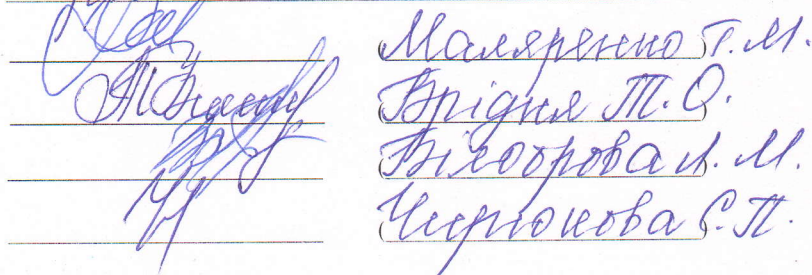 (Маляренко Т.М.)
(Брідня Т.О.)
(Білоброва Л.М.)
(Чирюкова С.П.)